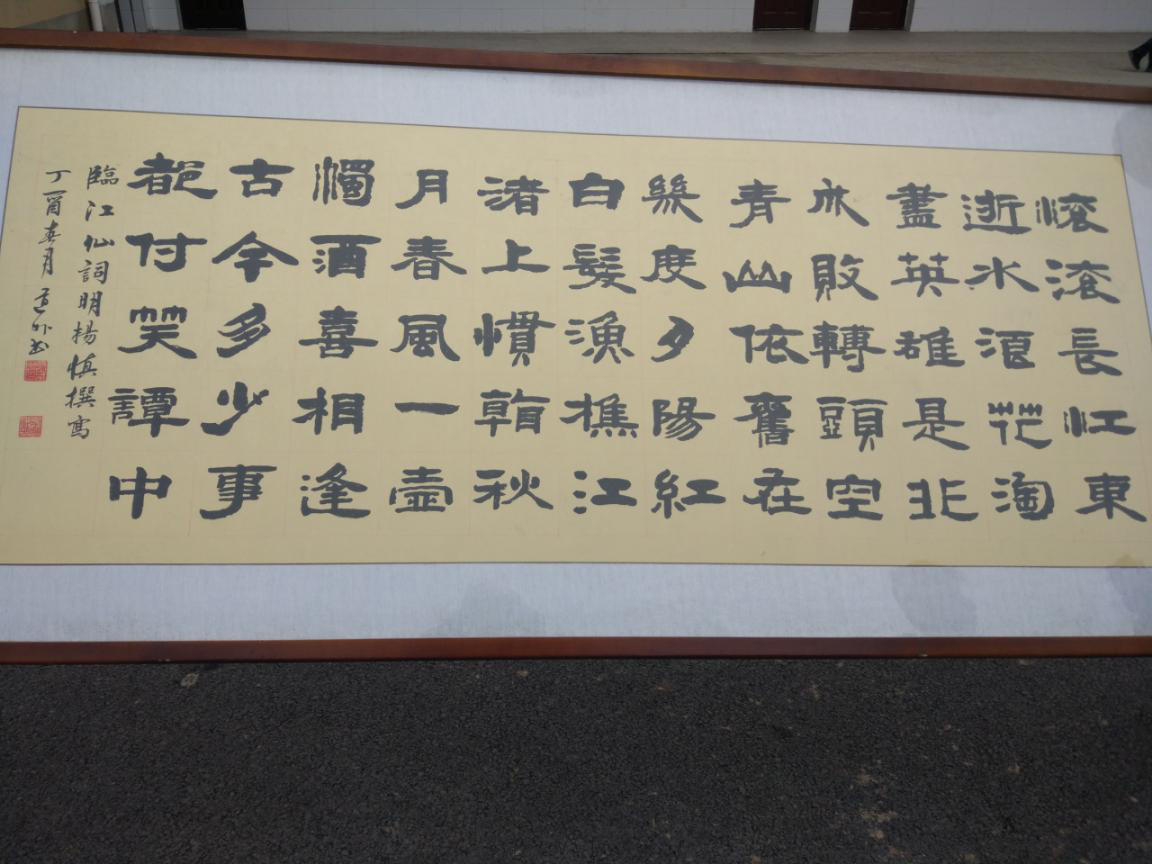 滚滚長江東
逝水浪花淘
盡英雄是非
成敗轉頭空
青山依舊在
幾度夕陽紅
白髮漁樵江
渚上慣看秋
月春風一壺
濁酒喜相逢
古今多少事
都付笑譚中
臨江仙詞明楊慎撰寫
丁酉春月